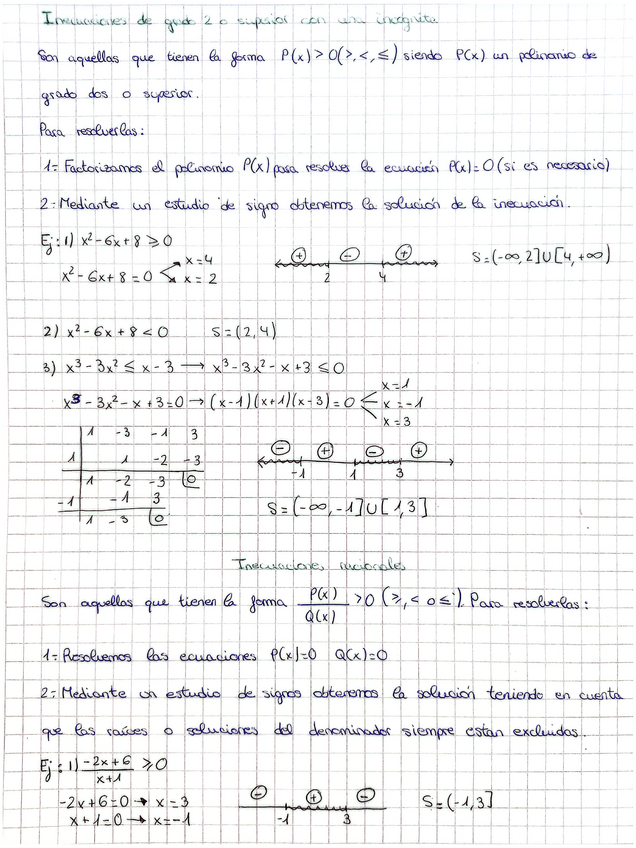 Inecuaciones de grado 2 o superior con una incógnita
Son aquellas que tienen la forma P(x) > 0 (≥, <, ≤) siendo P(x) un polinomio de
grado dos o superior.
Para resolverlas:
1- Factorizamos el polinomio P(x) para resolver la ecuación P(x)=0 (si es necesario)
2- Mediante un estudio de signo obtenemos la solución de la inecuación.
Ej: 1) x² - 6x + 8 ≥ 0
x² - 6x + 8 = 0 x = 4 x = 2
+ - +
2 4
S = (-∞, 2] U [4, +∞)
2) x² - 6x + 8 < 0 S = (2, 4)
3) x³ - 3x² ≤ x - 3 → x³ - 3x² - x + 3 ≤ 0
x³ - 3x² - x + 3 = 0 → (x-1)(x+1)(x-3) = 0 x = 1 x = -1 x = 3
1 -3 -1 3
1 1 -2 -3
1 -2 -3 0
-1 -1 3
1 -3 0
- + - +
-1 1 3
S = (-∞, -1] U [1, 3]
Inecuaciones racionales
Son aquellas que tienen la forma P(x)/Q(x) > 0 (≥, < o ≤). Para resolverlas:
1- Resolvemos las ecuaciones P(x)=0 Q(x)=0
2- Mediante un estudio de signos obtenemos la solución teniendo en cuenta
que las raíces o soluciones del denominador siempre estan excluidas.
Ej: 1) -2x+6/x+1 ≥ 0
-2x+6=0 → x=3
x+1=0 → x=-1
- + -
-1 3
S = (-1, 3]